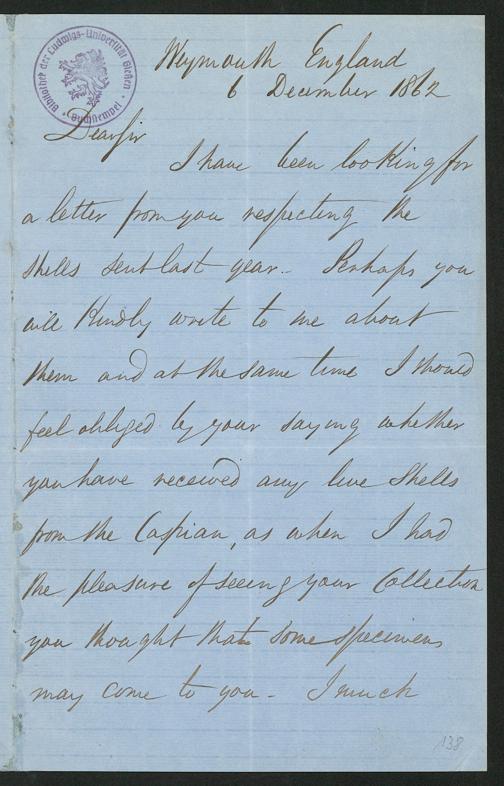 Bibliothek der Ludwigs-Universität Gießen
Buchstempel
Weymouth England
6 December 1862
Dear Sir
I have been looking for
a letter from you respecting the
Shells sent last year. Perhaps you
will Kindly write to me about
them and at the same time I should
feel obliged by your saying whether
you have received any live Shells
from the Caspian, as when I had
the pleasure of seeing your Collection
you thought that some specimens
may come to you - I much
138